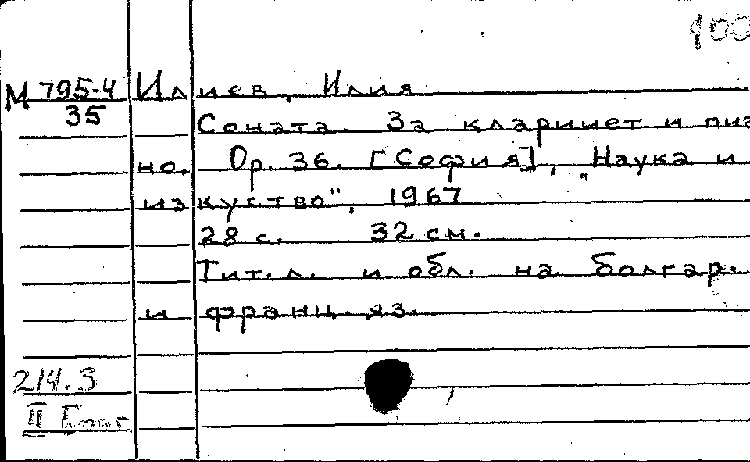 100
М 795-4 Илиев, Илия
35
Соната. За кларинет и пиа
но. Ор. 36. [София], "Наука и
изкуство", 1967
28 с. 32 см.
Тит. л. и обл. на болгар.
и франц. яз.
214.3
II